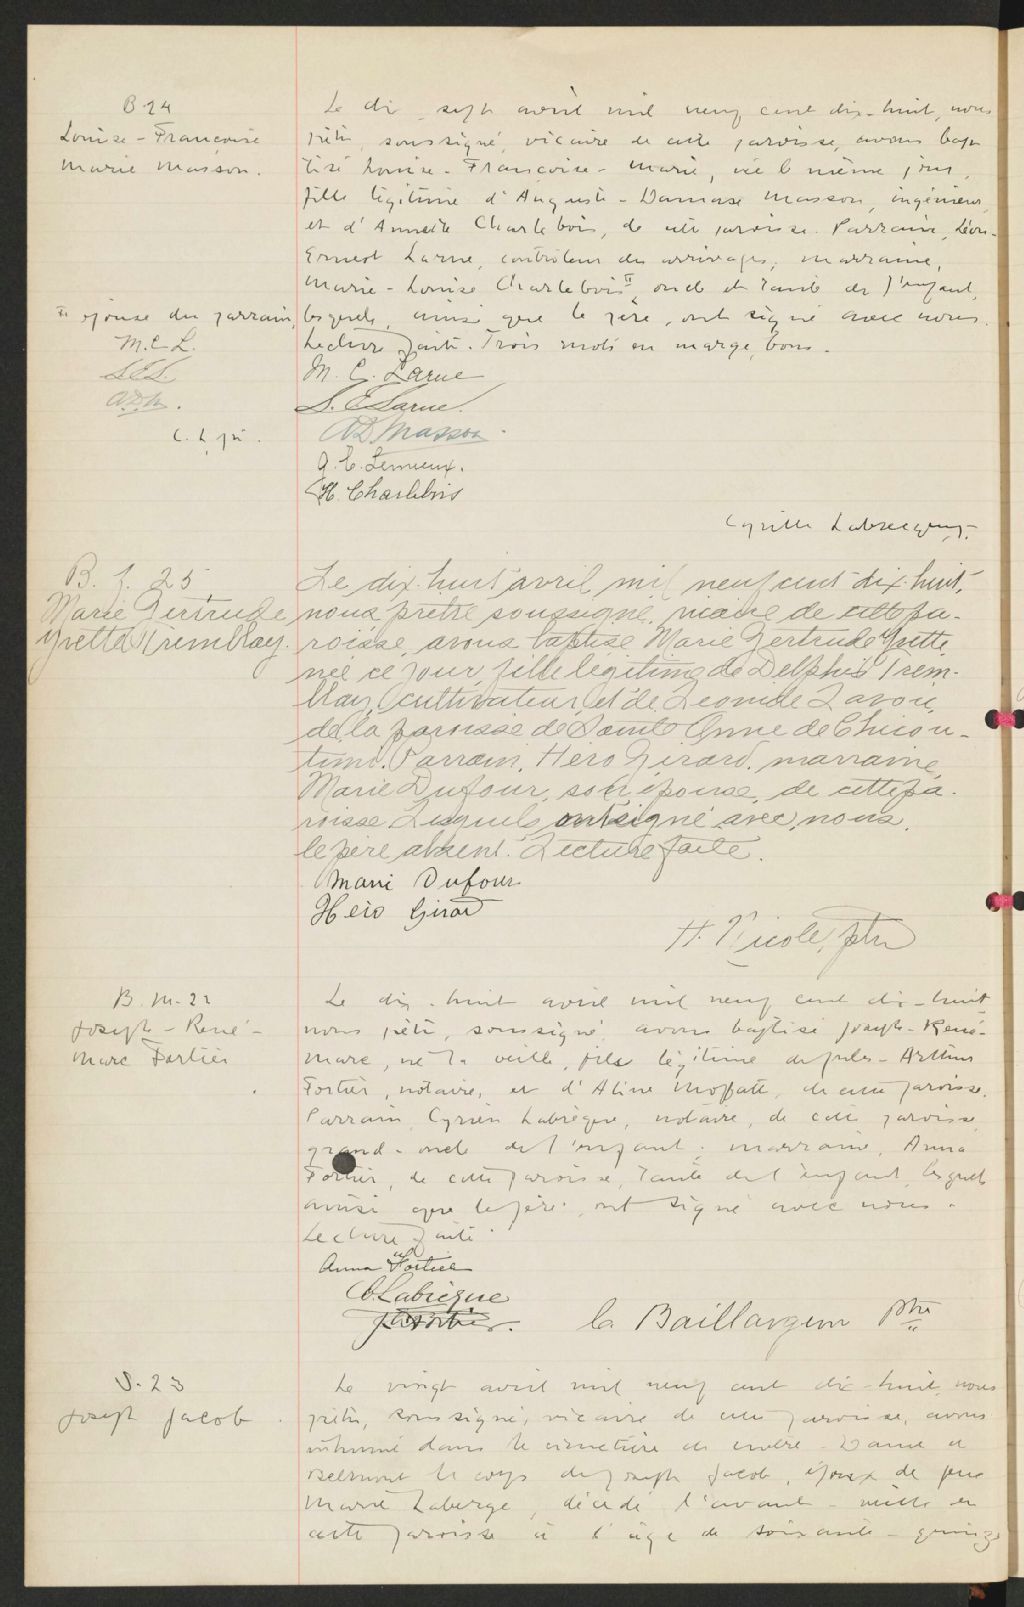 B 24
Louise-Françoise
Marie Masson.
Le dix-sept avril mil neuf cent dix-huit, nous
prêtre, soussigné, vicaire de cette paroisse, avons bap-
tisé Louise-Françoise-Marie, née le même jour,
fille légitime d'Auguste-Damase Masson, ingénieur,
et d'Annette Charlebois, de cette paroisse. Parrain, Léon-
Ernest Larue, contrôleur des arrivages, marraine,
Marie-Louise Charlebois, oncle et tante de l'enfant,
épouse du parrain,
lesquels, ainsi que le père, ont signé avec nous.
M.C L.
Lecture faite. Trois mots en marge, bons.
L.E.L.
A.D.M.
C. L. ptr.
M. C. Larue
L. E Larue.
A D Masson.
J. E. Lemieux.
H. Charlebois
Cyrille Labrecque, p.
B. f. 25
Marie Gertrude
Yvette Tremblay.
Le dix-huit avril mil neuf cent dix-huit,
nous, prêtre soussigné, vicaire de cette pa-
roisse, avons baptisé Marie Gertrude Yvette,
née ce jour, fille légitime de Delphis Trem-
blay, cultivateur, et de Léonide Lavoie,
de la paroisse de Sainte Anne de Chicou-
timi. Parrain, Héro Girard, marraine,
Marie Dufour, son épouse, de cette pa-
roisse Lesquels ont signé avec nous,
le père absent. Lecture faite.
Marie Dufour
Héro Girard
H. Nicole, ptre
B. M-22
Joseph-René-
Marc Fortier
Le dix-huit avril mil neuf cent dix-huit
nous prêtre, soussigné avons baptisé Joseph-René-
Marc, né la veille, fils légitime de Jules-Arthur
Fortier, notaire, et d'Aline Moffatt, de cette paroisse.
Parrain, Cyrien Labrègue, notaire, de cette paroisse,
grand-oncle de l'enfant; marraine, Anna
Fortier, de cette paroisse, tante de l'enfant, lesquels
ainsi que le père, ont signé avec nous.
Lecture faite.
Anna Fortier
C. Labrègue
J A Fortier.
C. Baillargeon Ptre
S-23
Joseph Jacob.
Le vingt avril mil neuf cent dix-huit, nous
prêtre, soussigné, vicaire de cette paroisse, avons
inhumé dans le cimetière de Notre-Dame de
Belmont le corps de Joseph Jacob, époux de feue
Marie Laberge, décédé l'avant-veille en
cette paroisse à l'âge de soixante-quinze